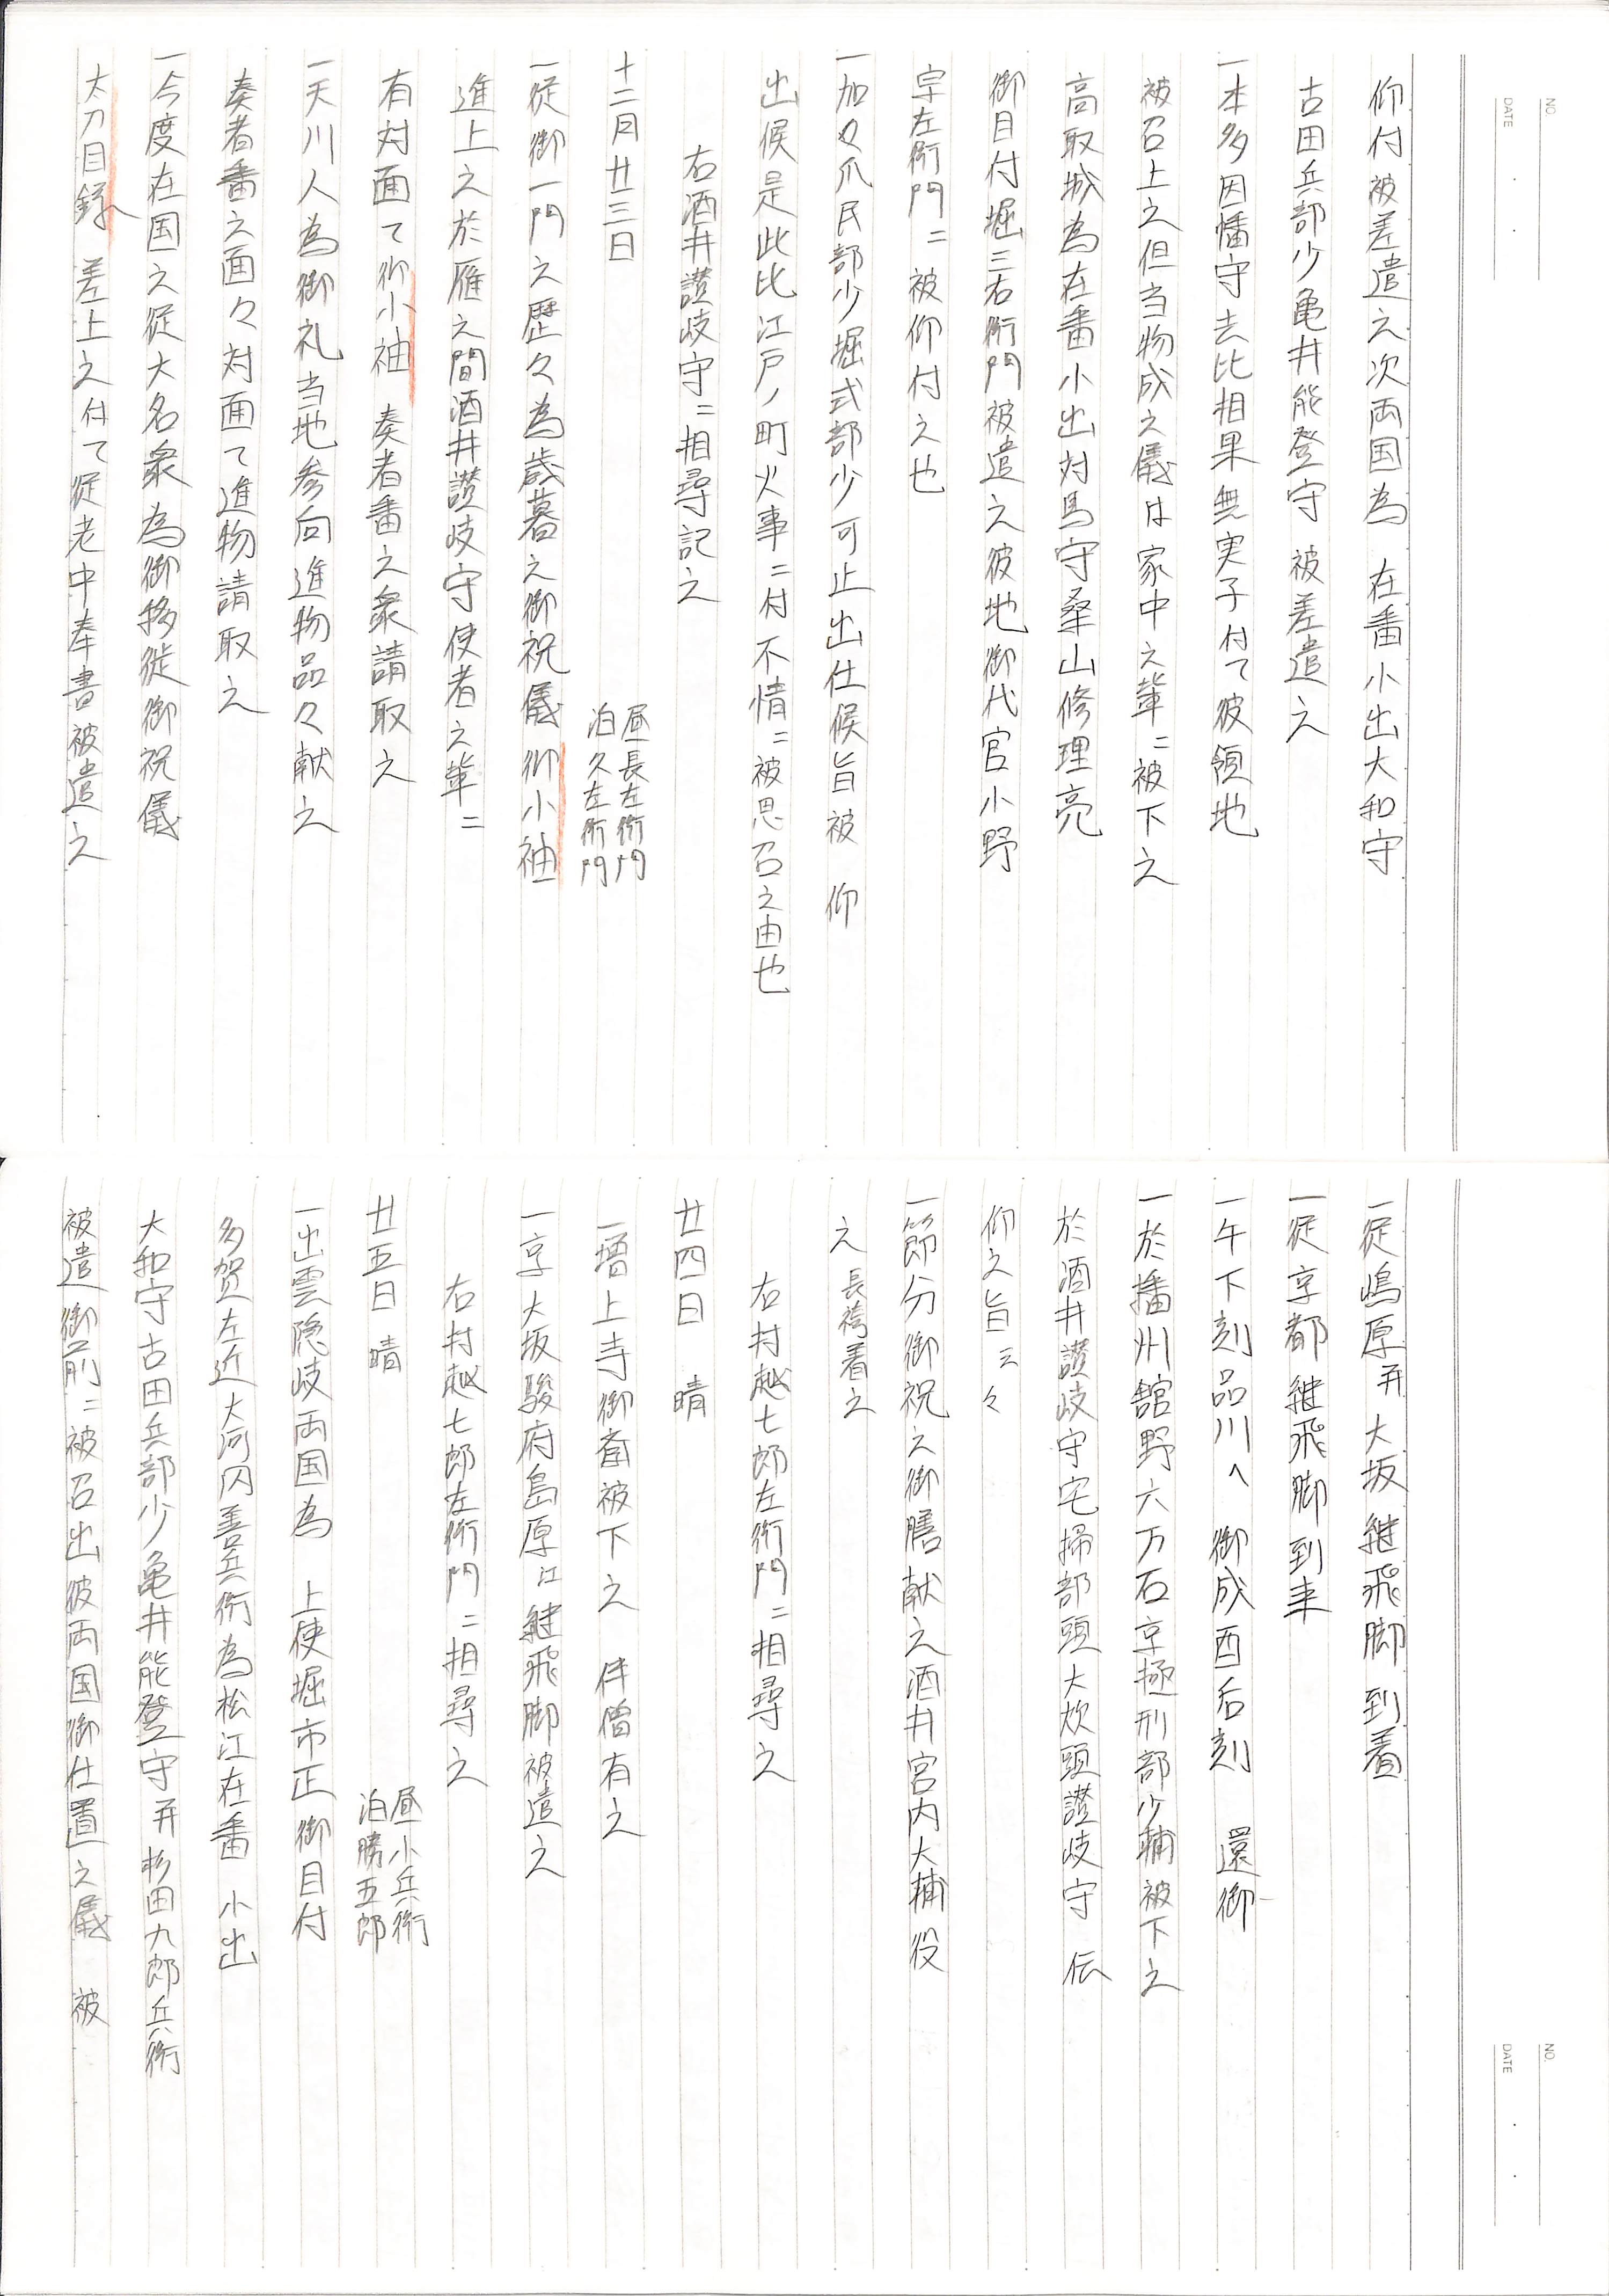 NO.
DATE
仰付被差遣之次両国為 在番小出大和守
古田兵部少亀井能登守 被差遣之
一本多因幡守去比相果無実子付て彼領地
被召上之但当物成之儀は家中之輩ニ被下之
高取城為在番小出対馬守桑山修理亮
御目付堀三右衛門被遣之彼地御代官小野
宗左衛門ニ被仰付之也
一加々爪民部少堀式部少可止出仕候旨被 仰
出候是此比江戸ノ町火事ニ付不情ニ被思召之由也
右酒井讃岐守ニ相尋記之
十二月廿三日
昼長左衛門
泊久左衛門
一従御一門之歴々為歳暮之御祝儀 御小袖
進上之於雁之間酒井讃岐守使者之輩ニ
有対面て御小袖 奏者番之衆請取之
一天川人為御礼当地参向進物品々献之
奏者番之面々対面て進物請取之
一今度在国之従大名衆為御移徙御祝儀
太刀目録 差上之付て従老中奉書被遣之
NO.
DATE
一従嶋原并大坂継飛脚到着
一従京都継飛脚到来
一午下刻品川へ 御成酉后刻 還御
一於播州舘野六万石京極刑部少輔被下之
於酒井讃岐守宅掃部頭大炊頭讃岐守 伝
仰之旨云々
一節分御祝之御膳献之酒井宮内大輔役
之 長袴着之
右村越七郎左衛門ニ相尋之
廿四日 晴
一増上寺御斎被下之 伴僧有之
一京大坂駿府島原江継飛脚被遣之
右村越七郎左衛門ニ相尋之
廿五日 晴
昼小兵衛
泊勝五郎
一出雲隠岐両国為 上使堀市正御目付
多賀左近大河内善兵衛為松江在番 小出
大和守古田兵部少亀井能登守并杉田九郎兵衛
被遣御前ニ被召出彼両国御仕置之儀 被